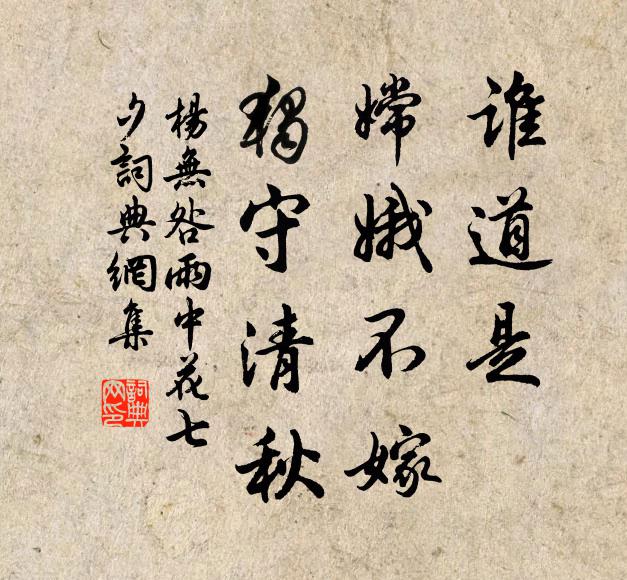 誰道是
嫦娥不嫁
獨守清秋
楊無咎雨中花七
夕詞典網集
詞典
网印